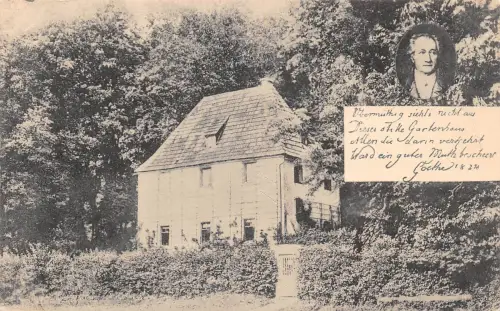 Übermüthig sieht's nicht aus
Dieses stille Gartenhaus
Allen die darin verkehrt
Ward ein guter Muth bescheert
Goethe